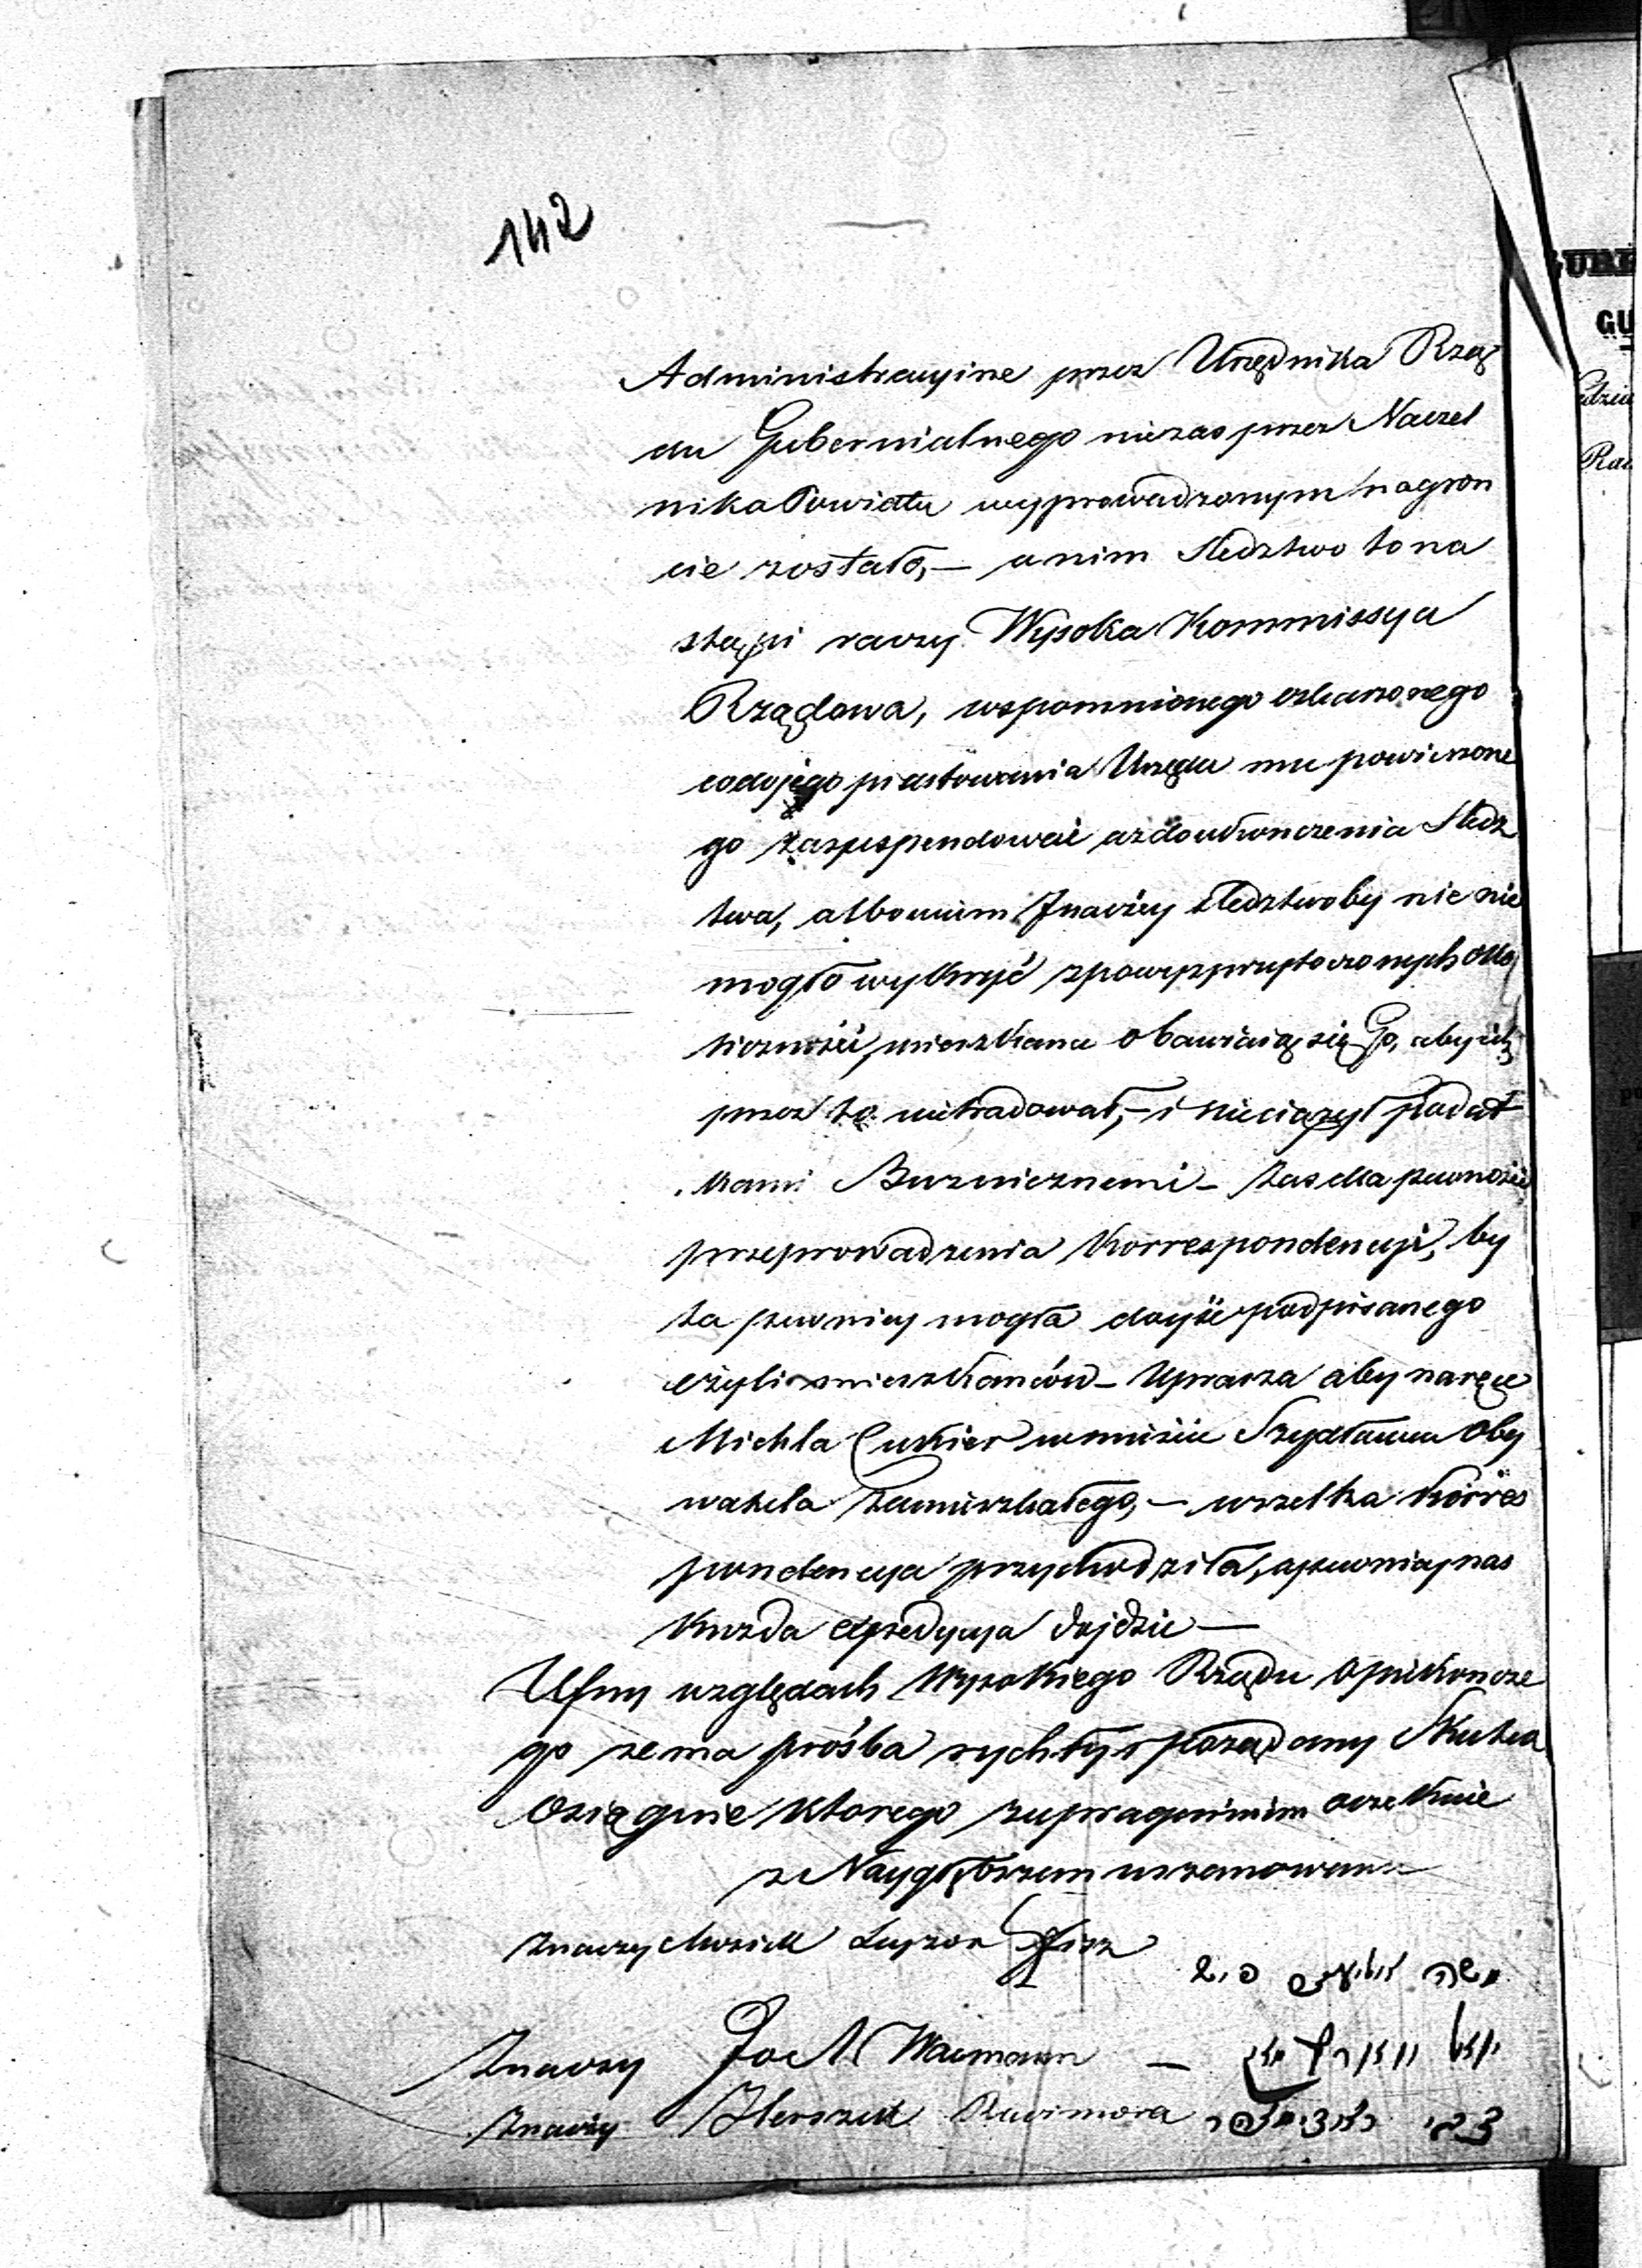 142
Administracyine przez Urzędnika Rzą
du Gubernialnego niezas przez Naczel
nika Powiatu wyprowadzonym na gron
cie zostało, — a nim Sledztwo to na
stąpi raczy Wysoka Kommissya
Rządowa, wspomnionego oskarzonego
co do jego piastowania Urzędu mu powierzone
go zasuspendować az do ukonczenia Sledz
twa, albowiem Inaczey sledztwoby nic nie
mogło wykryć z powyz przytoczonych oko
liczności, mieszkance obawiaią się Go, aby ich
przez to nietradował, — i nieciązył podat
kami Boznicznemi — Zas dla pewności
przeprowadzenia Korrespondencyi, by
ta pewniey mogła doyść podpisanego
czyli mieszkanców — Uprasza aby na ręce
Michla Cukier w mieście Szydłowcu Oby
watela Zamieszkałego, — wszelka Korres
pondencya przychodziła, a pewniey nas
Kazda expedycya dojdzie —
Ufny względach Wysokiego Rządu Opiekuncze
go ze ma prośba rychły i pożądany Skutek
Osiągnie którego z upragnieniem oczekuie
z Naygłębszem uszanowaniem
Znaczy Moziek Layzor Fisz
משה אליעזר פיש
Znaczy Joel Waimann —
יואל
Znaczy Herszek
צבי